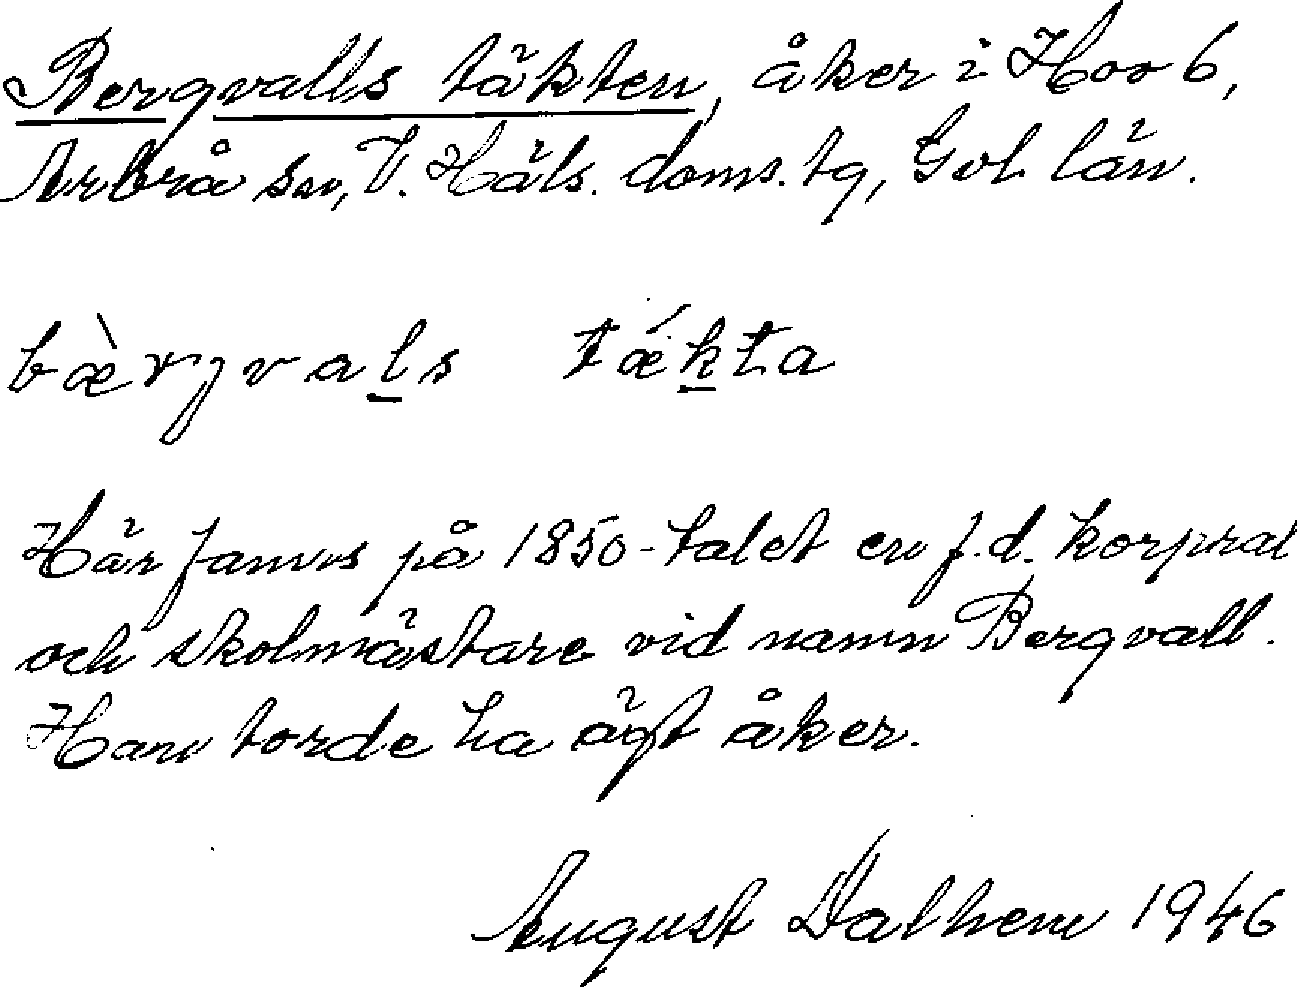 Bergvalls täkten, åker i Hov 6,
Arbrå sn, V. Häls. doms. tg, Gvl. län.
bæ̀rjvaḻs tǽḵta
Här fanns på 1850-talet en f.d. korpral
och skolmästare vid namn Bergvall.
Han torde ha ägt åker.
August Dalhem 1946